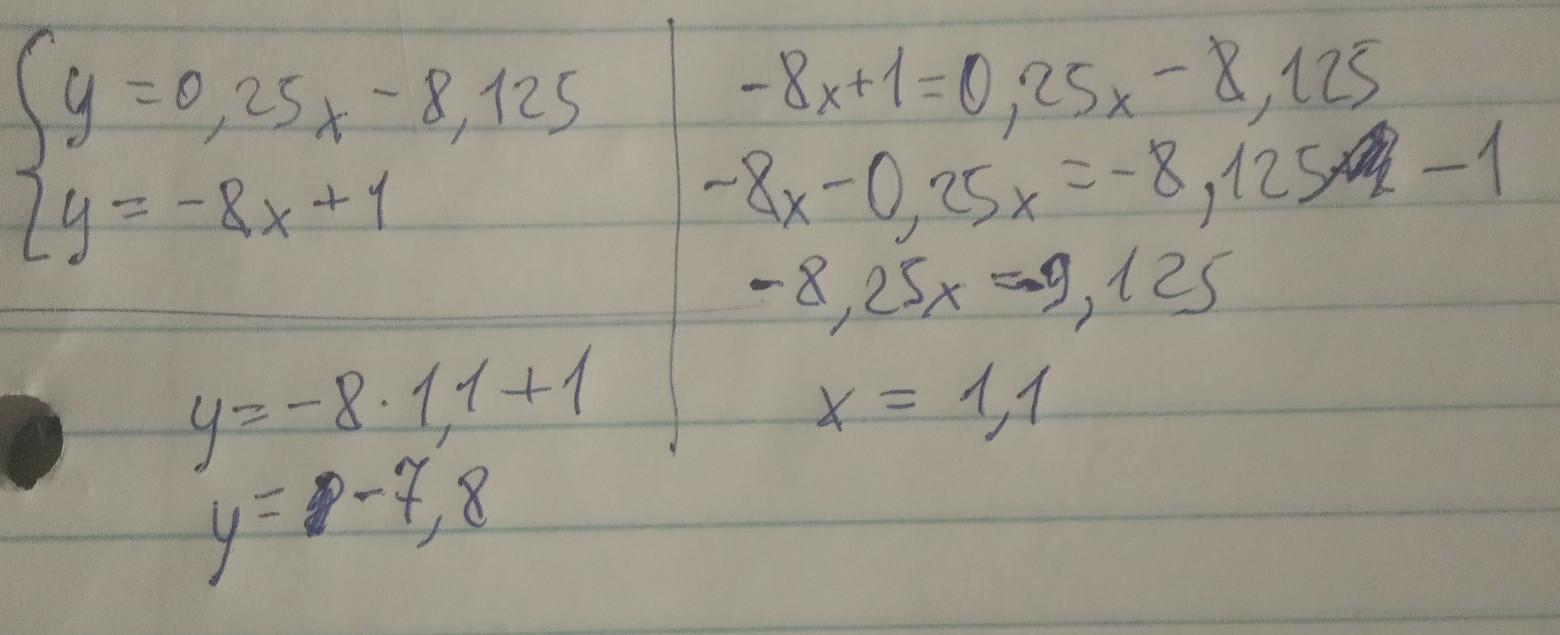 y = 0,25x - 8,125
y = -8x + 1
-8x+1 = 0,25x - 8,125
-8x - 0,25x = -8,125 - 1
-8,25x = -9,125
x = 1,1
y = -8 · 1,1 + 1
y = -7,8